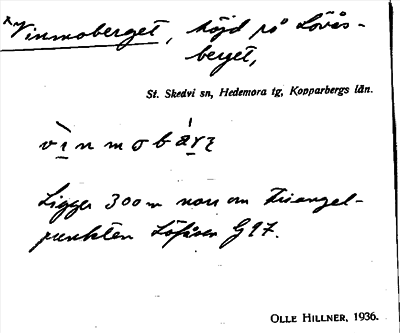 Vinmoberget, höjd på Lövås-
berget,
St. Skedvi sn, Hedemora tg, Kopparbergs län.
Ligger 300 m norr om triangel-
punkten Löfåsen G 97.
OLLE HILLNER, 1936.